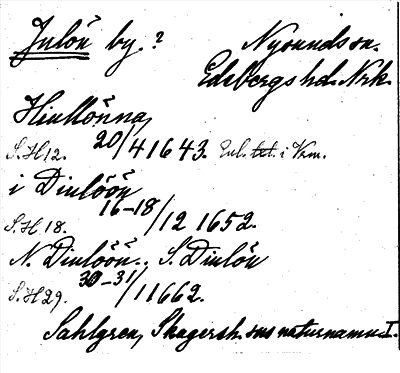 Julön by.? Nysunds sn.
Edsbergs hd. Nrk.
Hiullönna,
S.H 12. 20/4 1643. Enl. txt. i Vrm.
i Diulöön
S.H 18. 16-18/12 1652.
N. Diulöön., S. Diulön
S.H 29. 30-31/1 1662.
Sahlgren, Skagersh. sns naturnamn I.